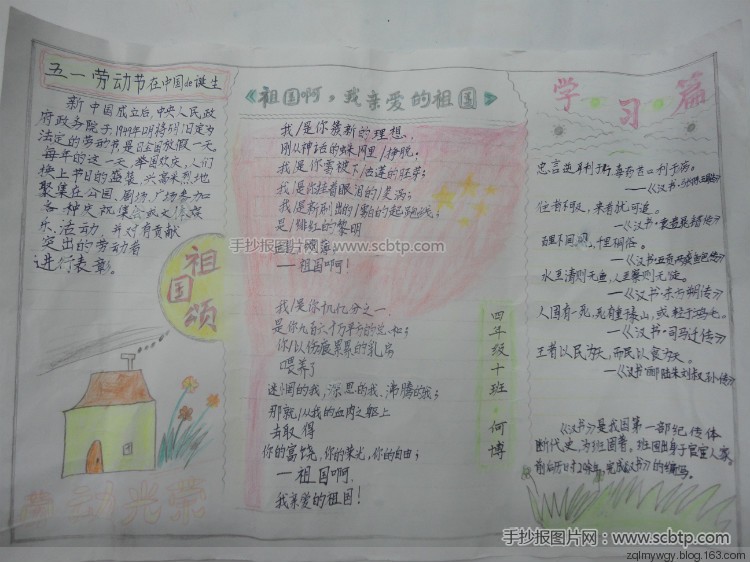 五一劳动节在中国de诞生
新中国成立后,中央人民政
府政务院于1949年12月将5月1日定为
法定的劳动节是日全国放假一天
每年的这一天,举国欢庆,人们
换上节日的盛装,兴高采烈地
聚集在公园、剧场、广场参加
各种庆祝集会或文体娱
乐活动,并对有贡献
突出的劳动者
进行表彰。
祖国颂
劳动光荣
《祖国啊,我亲爱的祖国》
我/是你簇新的理想,
刚从神话的蛛网里/挣脱;
我/是你雪被下/古莲的胚芽;
我/是你挂着眼泪的/笑涡;
我/是新刷出的/雪白的起跑线;
是/绯红的黎明
正在喷薄
—祖国啊!
我/是你十亿分之一
是你九百六十万平方的总和;
你/以伤痕累累的乳房
喂养了
迷惘的我、深思的我、沸腾的我;
那就/从我的血肉之躯上
去取得
你的富饶,你的荣光,你的自由;
—祖国啊,
我亲爱的祖国!
四年级十班 何博
学习篇
忠言逆耳利于行,毒药苦口利于病。
往者不可及,来者犹可追。
百里不同风,千里不同俗。
水至清则无鱼,人至察则无徒。
—《汉书·东方朔传》
人固有一死,死有重于泰山,或轻于鸿毛。
—《汉书·司马迁传》
王者以民为天,而民以食为天。
—《汉书·郦陆朱刘叔孙传》
《汉书》是我国第一部纪传体
断代史,为班固著,班固出身于官宦人家。
完成《汉书》的编写。
手抄报图片网·www.scbtp.com
手抄报图片网·www.scbtp.com
zqlmywgy.blog.163.com